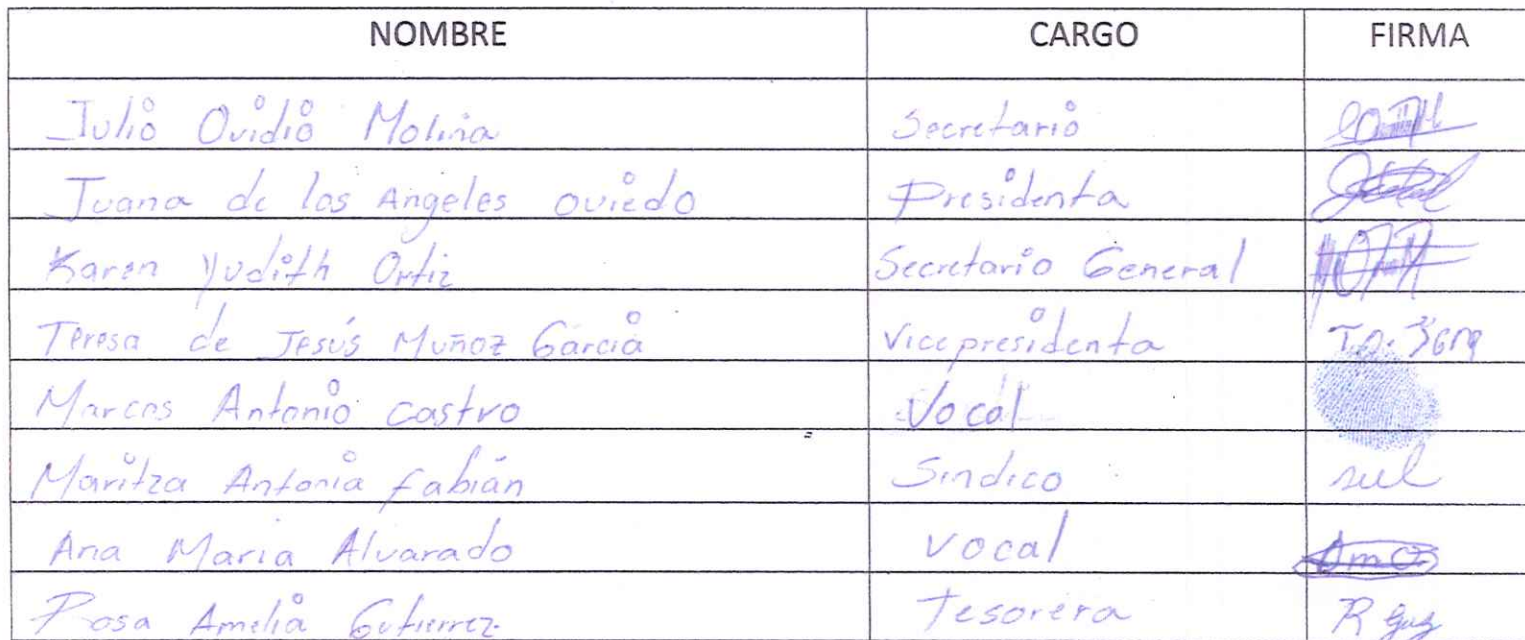 NOMBRE CARGO FIRMA
Julio Ovidio Molina Secretario
Juana de los Angeles oviedo Presidenta
Karen Yudith Ortiz Secretario General
Teresa de Jesús Muñoz Garcia Vicepresidenta
Marcos Antonio castro Vocal
Maritza Antonia fabián Sindico
Ana Maria Alvarado vocal
Rosa Amelia Gutierrez Tesorera